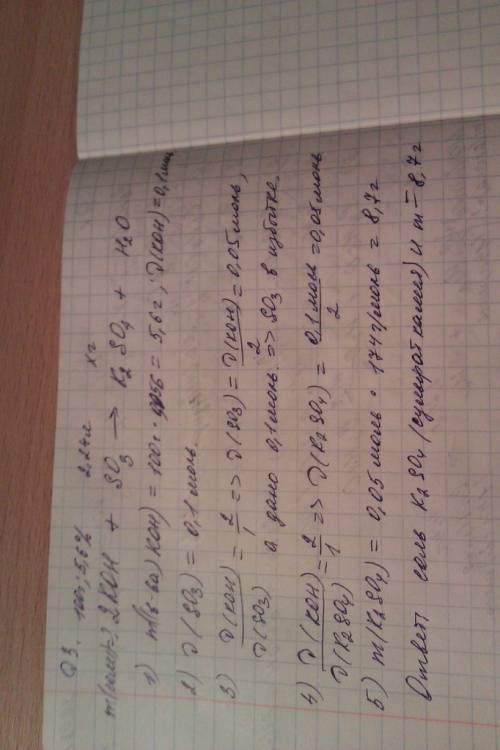 100г; 5,6% 2,24л xг
2KOH + SO3 → K2SO4 + H2O
1) m(в-ва) KOH) = 100г · 0,056 = 5,6г; ν(KOH) = 0,1моль
2) ν(SO3) = 0,1 моль.
3) ν(KOH)/ν(SO3) = 2/1 => ν(SO3) = ν(KOH)/2 = 0,05моль,
а дано 0,1моль => SO3 в избытке.
4) ν(KOH)/ν(K2SO4) = 2/1 => ν(K2SO4) = 0,1моль/2 = 0,05моль
5) m(K2SO4) = 0,05моль · 174г/моль = 8,7г
Ответ: соль K2SO4 (сульфат калия) и m = 8,7г